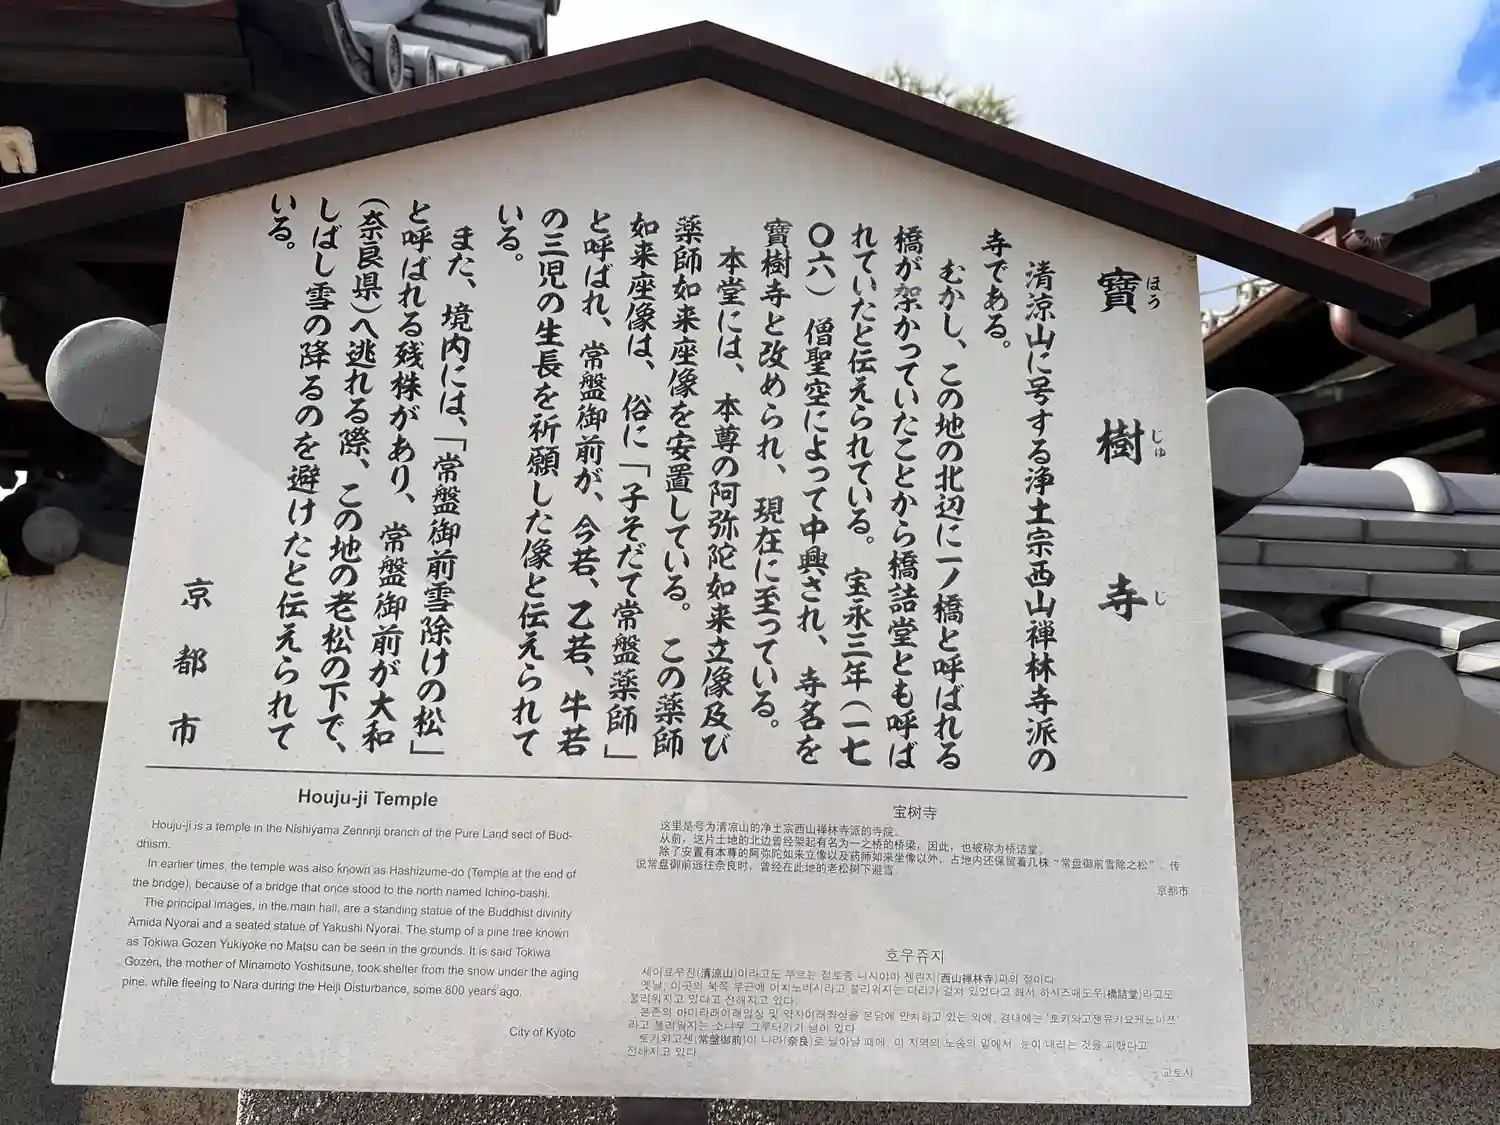 寶樹寺
ほうじゅじ
清涼山に号する浄土宗西山禅林寺派の
寺である。
むかし、この地の北辺に一ノ橋と呼ばれる
橋が架かっていたことから橋詰堂とも呼ば
れていたと伝えられている。宝永三年(一七
〇六)僧聖空によって中興され、寺名を
寶樹寺と改められ、現在に至っている。
本堂には、本尊の阿弥陀如来立像及び
薬師如来座像を安置している。この薬師
如来座像は、俗に「子そだて常盤薬師」
と呼ばれ、常盤御前が、今若、乙若、牛若
の三児の生長を祈願した像と伝えられて
いる。
また、境内には、「常盤御前雪除けの松」
と呼ばれる残株があり、常盤御前が大和
(奈良県)へ逃れる際、この地の老松の下で、
しばし雪の降るのを避けたと伝えられて
いる。
京都市
Houju-ji Temple
Houju-ji is a temple in the Nishiyama Zenrinji branch of the Pure Land sect of Bud-
dhism.
In earlier times, the temple was also known as Hashizume-do (Temple at the end of
the bridge), because of a bridge that once stood to the north named Ichino-bashi.
The principal images, in the main hall, are a standing statue of the Buddhist divinity
Amida Nyorai and a seated statue of Yakushi Nyorai. The stump of a pine tree known
as Tokiwa Gozen Yukiyoke no Matsu can be seen in the grounds. It is said Tokiwa
Gozen, the mother of Minamoto Yoshitsune, took shelter from the snow under the aging
pine, while fleeing to Nara during the Heiji Disturbance, some 800 years ago.
City of Kyoto
宝树寺
这里是号为清凉山的净土宗西山禅林寺派的寺院。
从前，这片土地的北边曾经架起有名为一之桥的桥梁，因此，也被称为桥诘堂。
除了安置有本尊的阿弥陀如来立像以及药师如来坐像以外，占地内还保留着几株“常盘御前雪除之松”。传
说常盘御前远往奈良时，曾经在此地的老松树下避雪。
京都市
호우쥬지
세이료우진(清涼山)이라고도 부르는 정토종 니시야마 젠린지(西山禅林寺)파의 절이다
옛날, 이곳의 북쪽 부근에 이치노바시라고 불리워지는 다리가 걸쳐 있었다고 해서 하시즈메도우(橋詰堂)라고도
불리워지고 있다고 전해지고 있다
본존의 아미타래이래입상 및 약사이래좌상을 본당에 안치하고 있는 외에, 경내에는 '토키와고젠유키요케노마쯔'
라고 불리워지는 소나무 그루터기가 남아 있다
토키와고젠(常盤御前)이 나라(奈良)로 달아날 때에, 이 지역의 노송의 밑에서 눈이 내리는 것을 피했다고
전해지고 있다
교토시